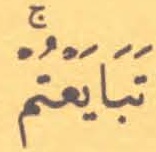 تَبَايَعْتُمْ ۚ